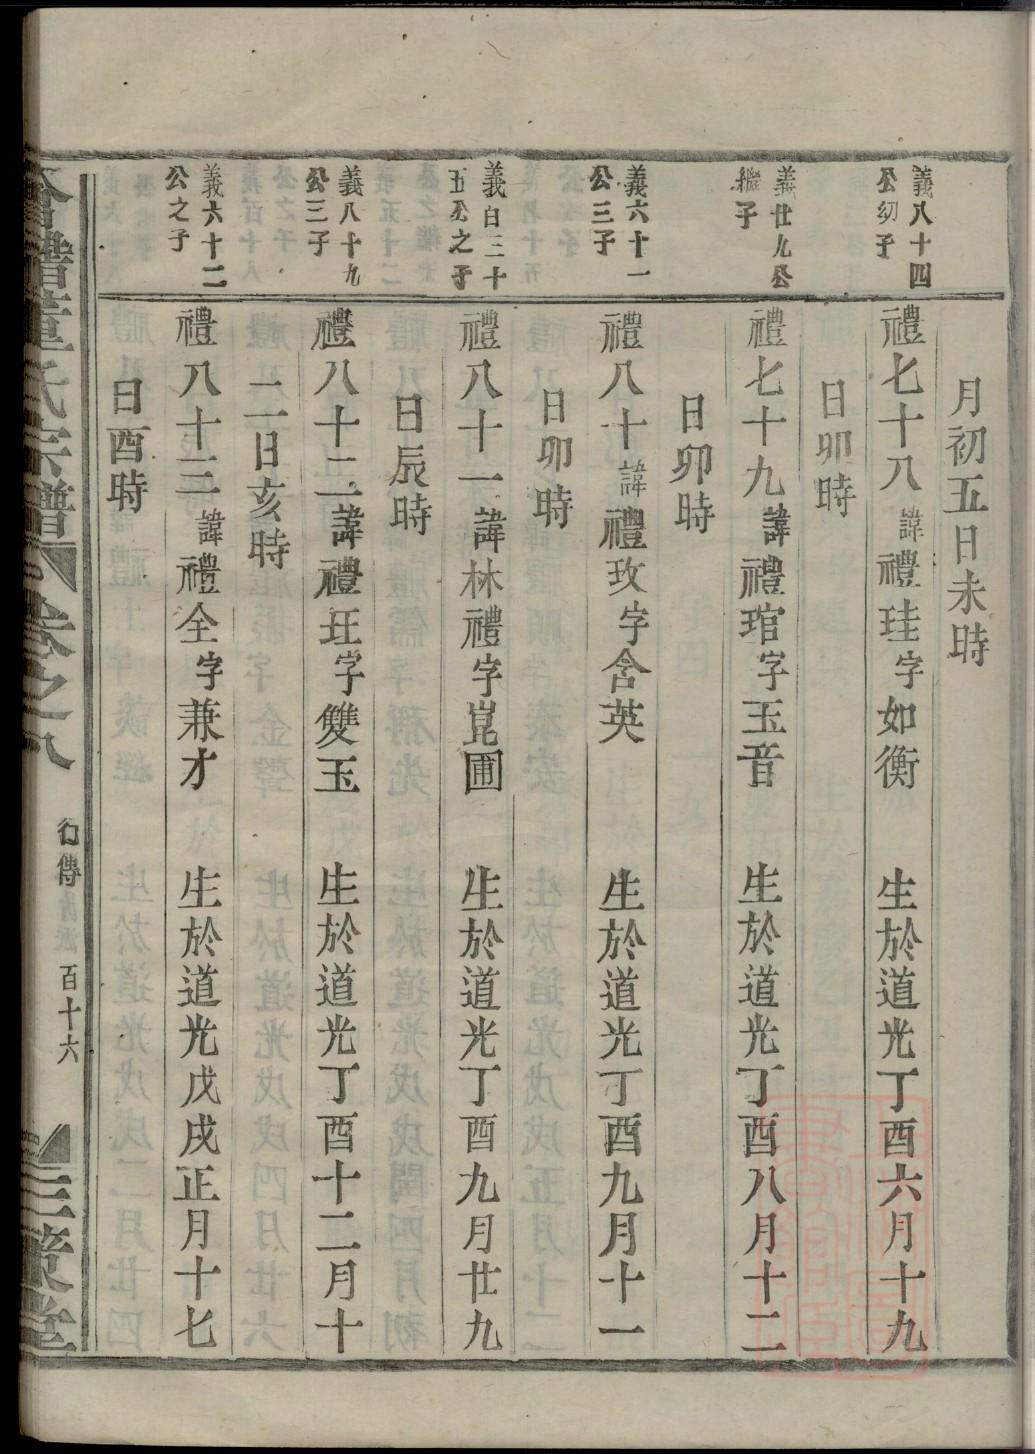 月初五日未時
義八十四
公幼子
禮七十八諱禮珪字如衡 生於道光丁酉六月十九
日卯時
義廿九公
繼子
禮七十九諱禮琯字玉音 生於道光丁酉八月十二
日卯時
義六十一
公三子
禮八十諱禮玫字含英 生於道光丁酉九月十一
日卯時
義百三十
五公之子
禮八十一諱林禮字崑圃 生於道光丁酉九月廿九
日辰時
義八十九
公三子
禮八十二諱禮玨字雙玉 生於道光丁酉十二月十
二日亥時
義六十二
公之子
禮八十三諱禮全字兼才 生於道光戊戌正月十七
日酉時
董氏宗譜 卷之八 行傳 百十六 三策堂